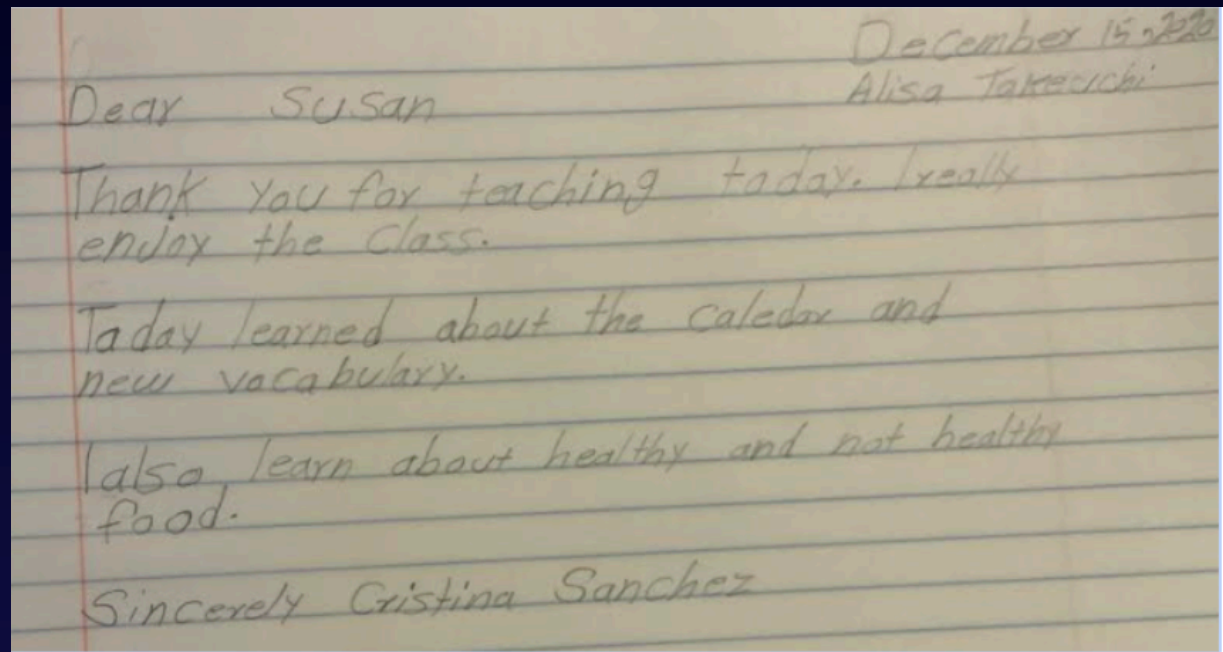 December 15, 2020
Alisa Takeuchi
Dear Susan
Thank you for teaching today. I really
enjoy the class.
Today learned about the caledar and
new vocabulary.
I also, learn about healthy and not healthy
food.
Sincerely Cristina Sanchez